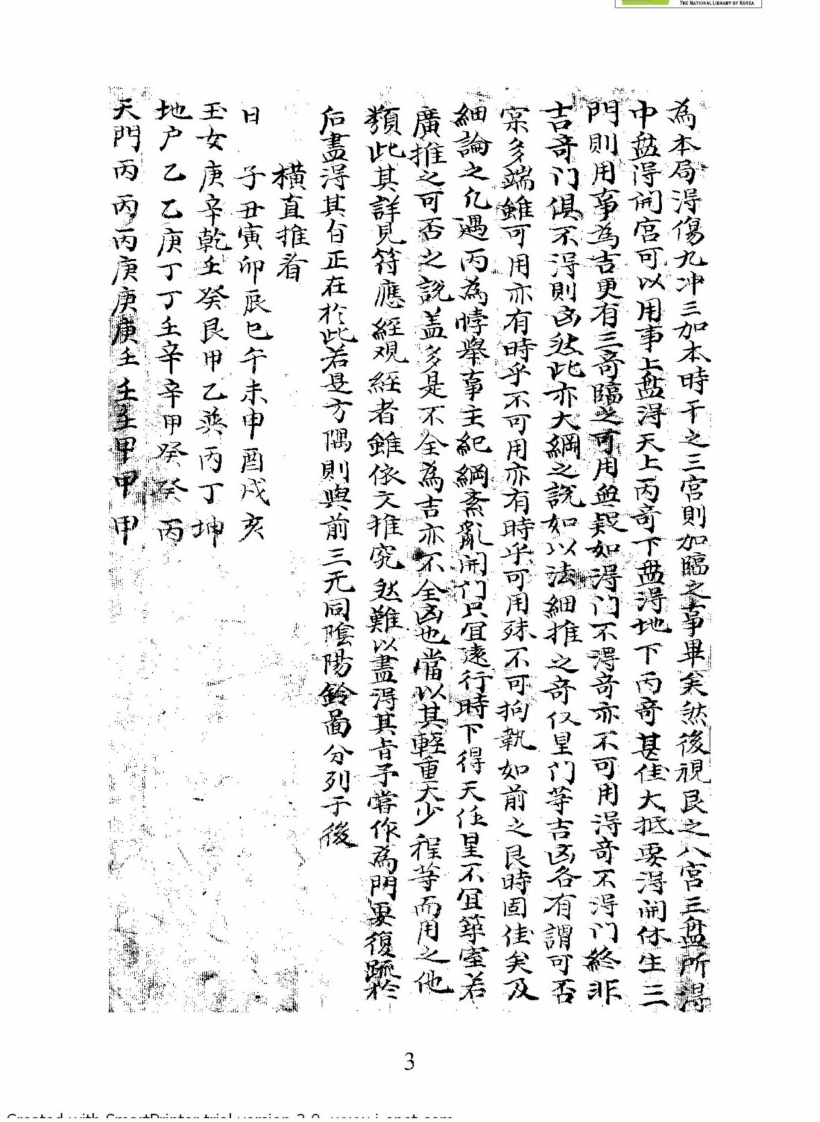 THE NATIONAL LIBRARY OF KOREA
為本局淂傷九冲三加本時干之三宮則加臨之事畢矣然後視艮之八宮三盤所淂
中盘淂開宮可以用事上盘淂天上丙奇下盘淂地下丙奇甚佳大抵要淂開休生三
門則用事為吉更有三奇臨之可用無疑如淂门不淂奇亦不可用淂奇不淂门終非
吉奇门俱不淂則凶然此亦大綱之說如以法細推之奇仪星门等吉凶各有謂可否
寀多端雖可用亦有時乎不可用亦有時乎可用殊不可拘執如前之艮時固佳矣及
細論之凢遇丙為悖舉事主紀綱紊亂開门只宜遠行時下得天任星不宜築室若
廣推之可否之說盖多是不全為吉亦不全凶也當以其輕重大少程等而用之他
類此其詳見符應經观經者雖依文推究然難以盡淂其旨予嘗作為門要復䟽於
后盡淂其旨正在於此若是方隅則與前三元同陰陽鈴啚分列于後
橫直推看
日 子丑寅卯辰巳午未申酉戌亥
玉女庚辛乾壬癸艮甲乙巽丙丁坤
地户乙乙庚丁丁壬辛辛甲癸癸丙
天門丙丙丙庚庚庚壬壬壬甲甲甲
3